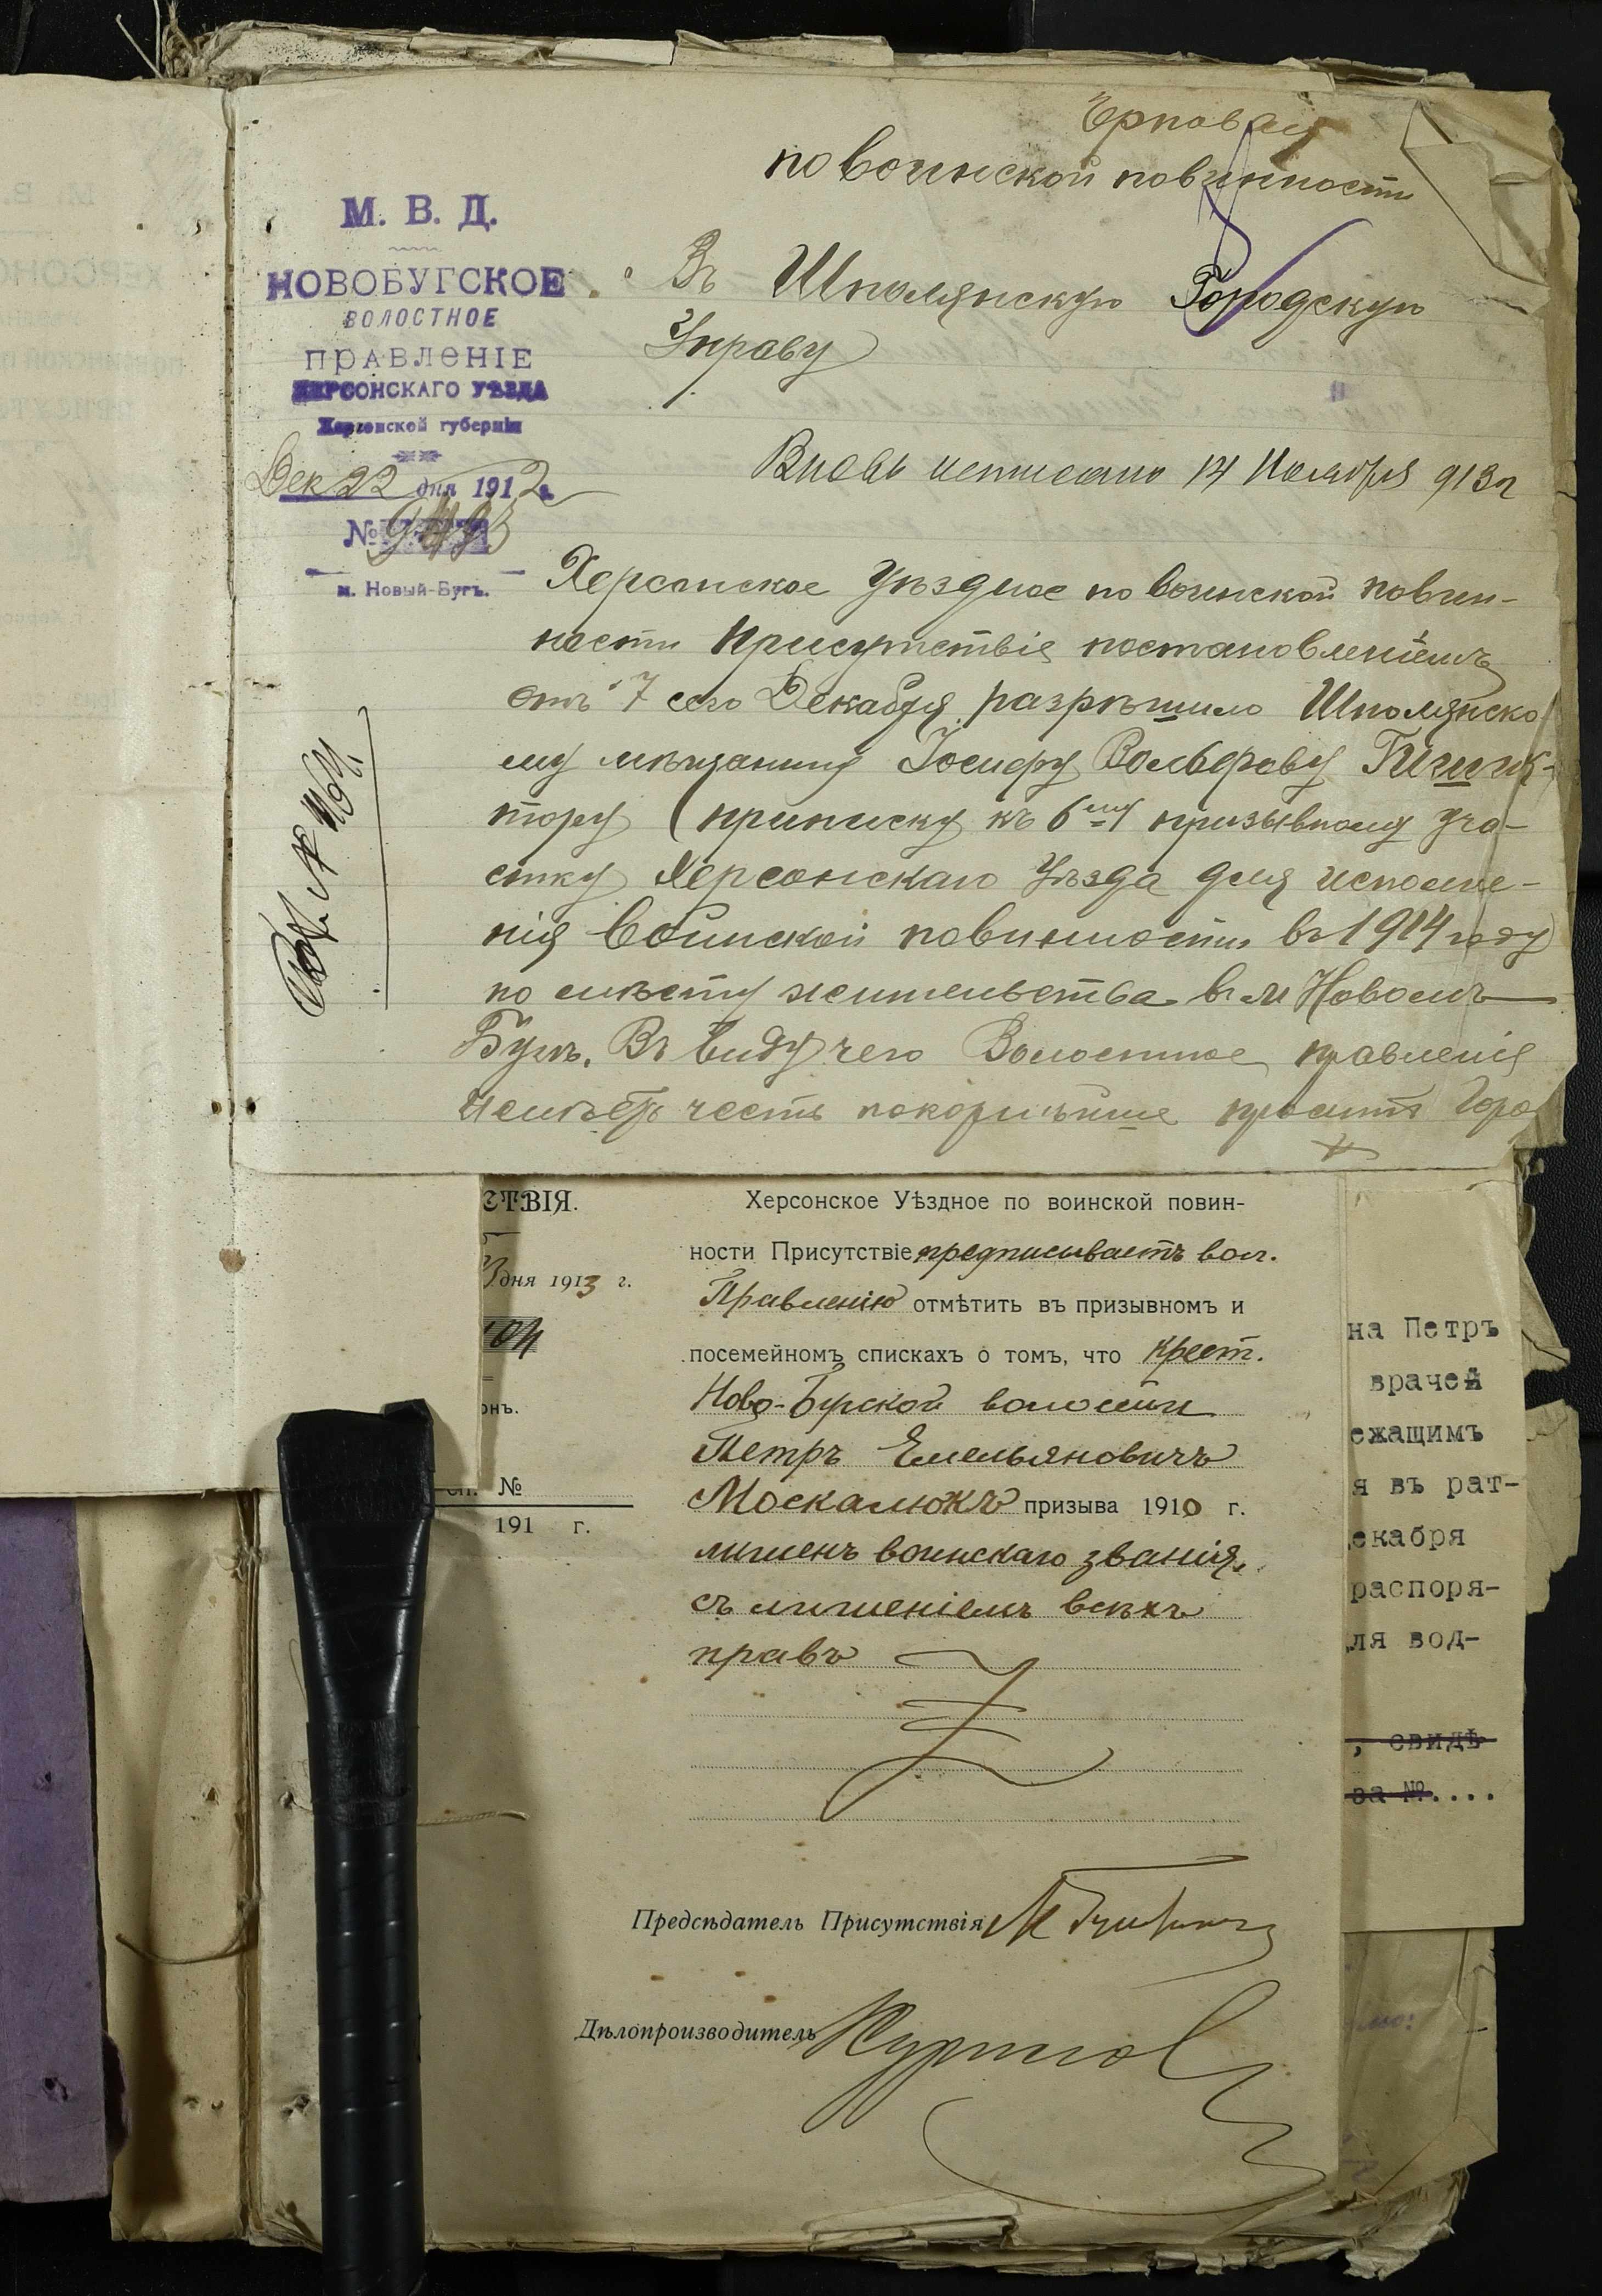 по воинской повинности
М. В. Д.
НОВОБУГСКОЕ
ВОЛОСТНОЕ
ПРАВЛЕНІЕ
ХЕРСОНСКАГО УѢЗДА
Херсонской губерніи
Дек 22 дня 1912 г.
№
м. Новый-Бугъ.
Въ Шполянскую Городскую
Управу
Вновь исписано 14 Ноября 913 г
Херсонское Уѣздное по воинской повин-
ности Присутствіе постановленіемъ
отъ 7 сего Декабря разрѣшило Шполянско
му мѣщанину Іосифу Вольфову
тору приписку къ 6му призывному уча-
стку Херсонскаго Уѣзда для исполне-
нія воинской повинности въ 1914 году
по мѣсту жительства въ м Новомъ
Бугѣ. Въ виду чего Волостное правленіе
имѣетъ честь покорнѣйше проситъ Горо
СТВІЯ.
дня 1913 г.
104
онъ.
сп. №
191 г.
Херсонское Уѣздное по воинской повин-
ности Присутствіе предписываетъ вол.
Правленію отмѣтить въ призывномъ и
посемейномъ спискахъ о томъ, что крест.
Ново-Бугской волости
Петръ Емельяновичъ
Москалюкъ призыва 1910 г.
лишенъ воинскаго званія,
съ лишеніемъ всѣхъ
правъ
Предсѣдатель Присутствія
Дѣлопроизводитель
на Петръ
врачей
ежащимъ
я въ рат-
екабря
распоря-
ля вод-
, свидѣ
за №....